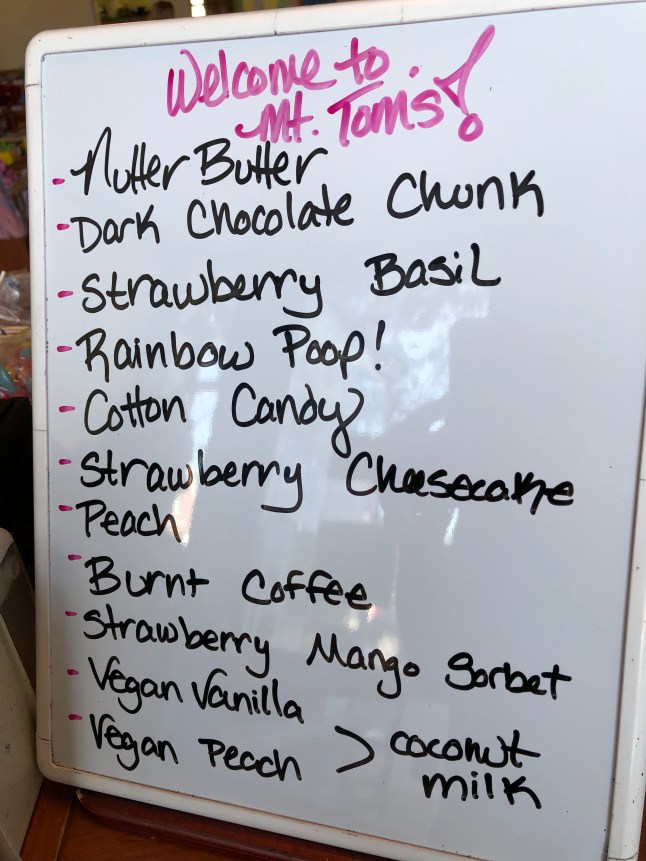 Welcome to
Mt. Toms!
- Nutter Butter
- Dark Chocolate Chunk
- Strawberry Basil
- Rainbow Poop!
- Cotton Candy
- Strawberry Cheesecake
- Peach
- Burnt Coffee
- Strawberry Mango Sorbet
- Vegan Vanilla
- Vegan Peach > coconut
milk